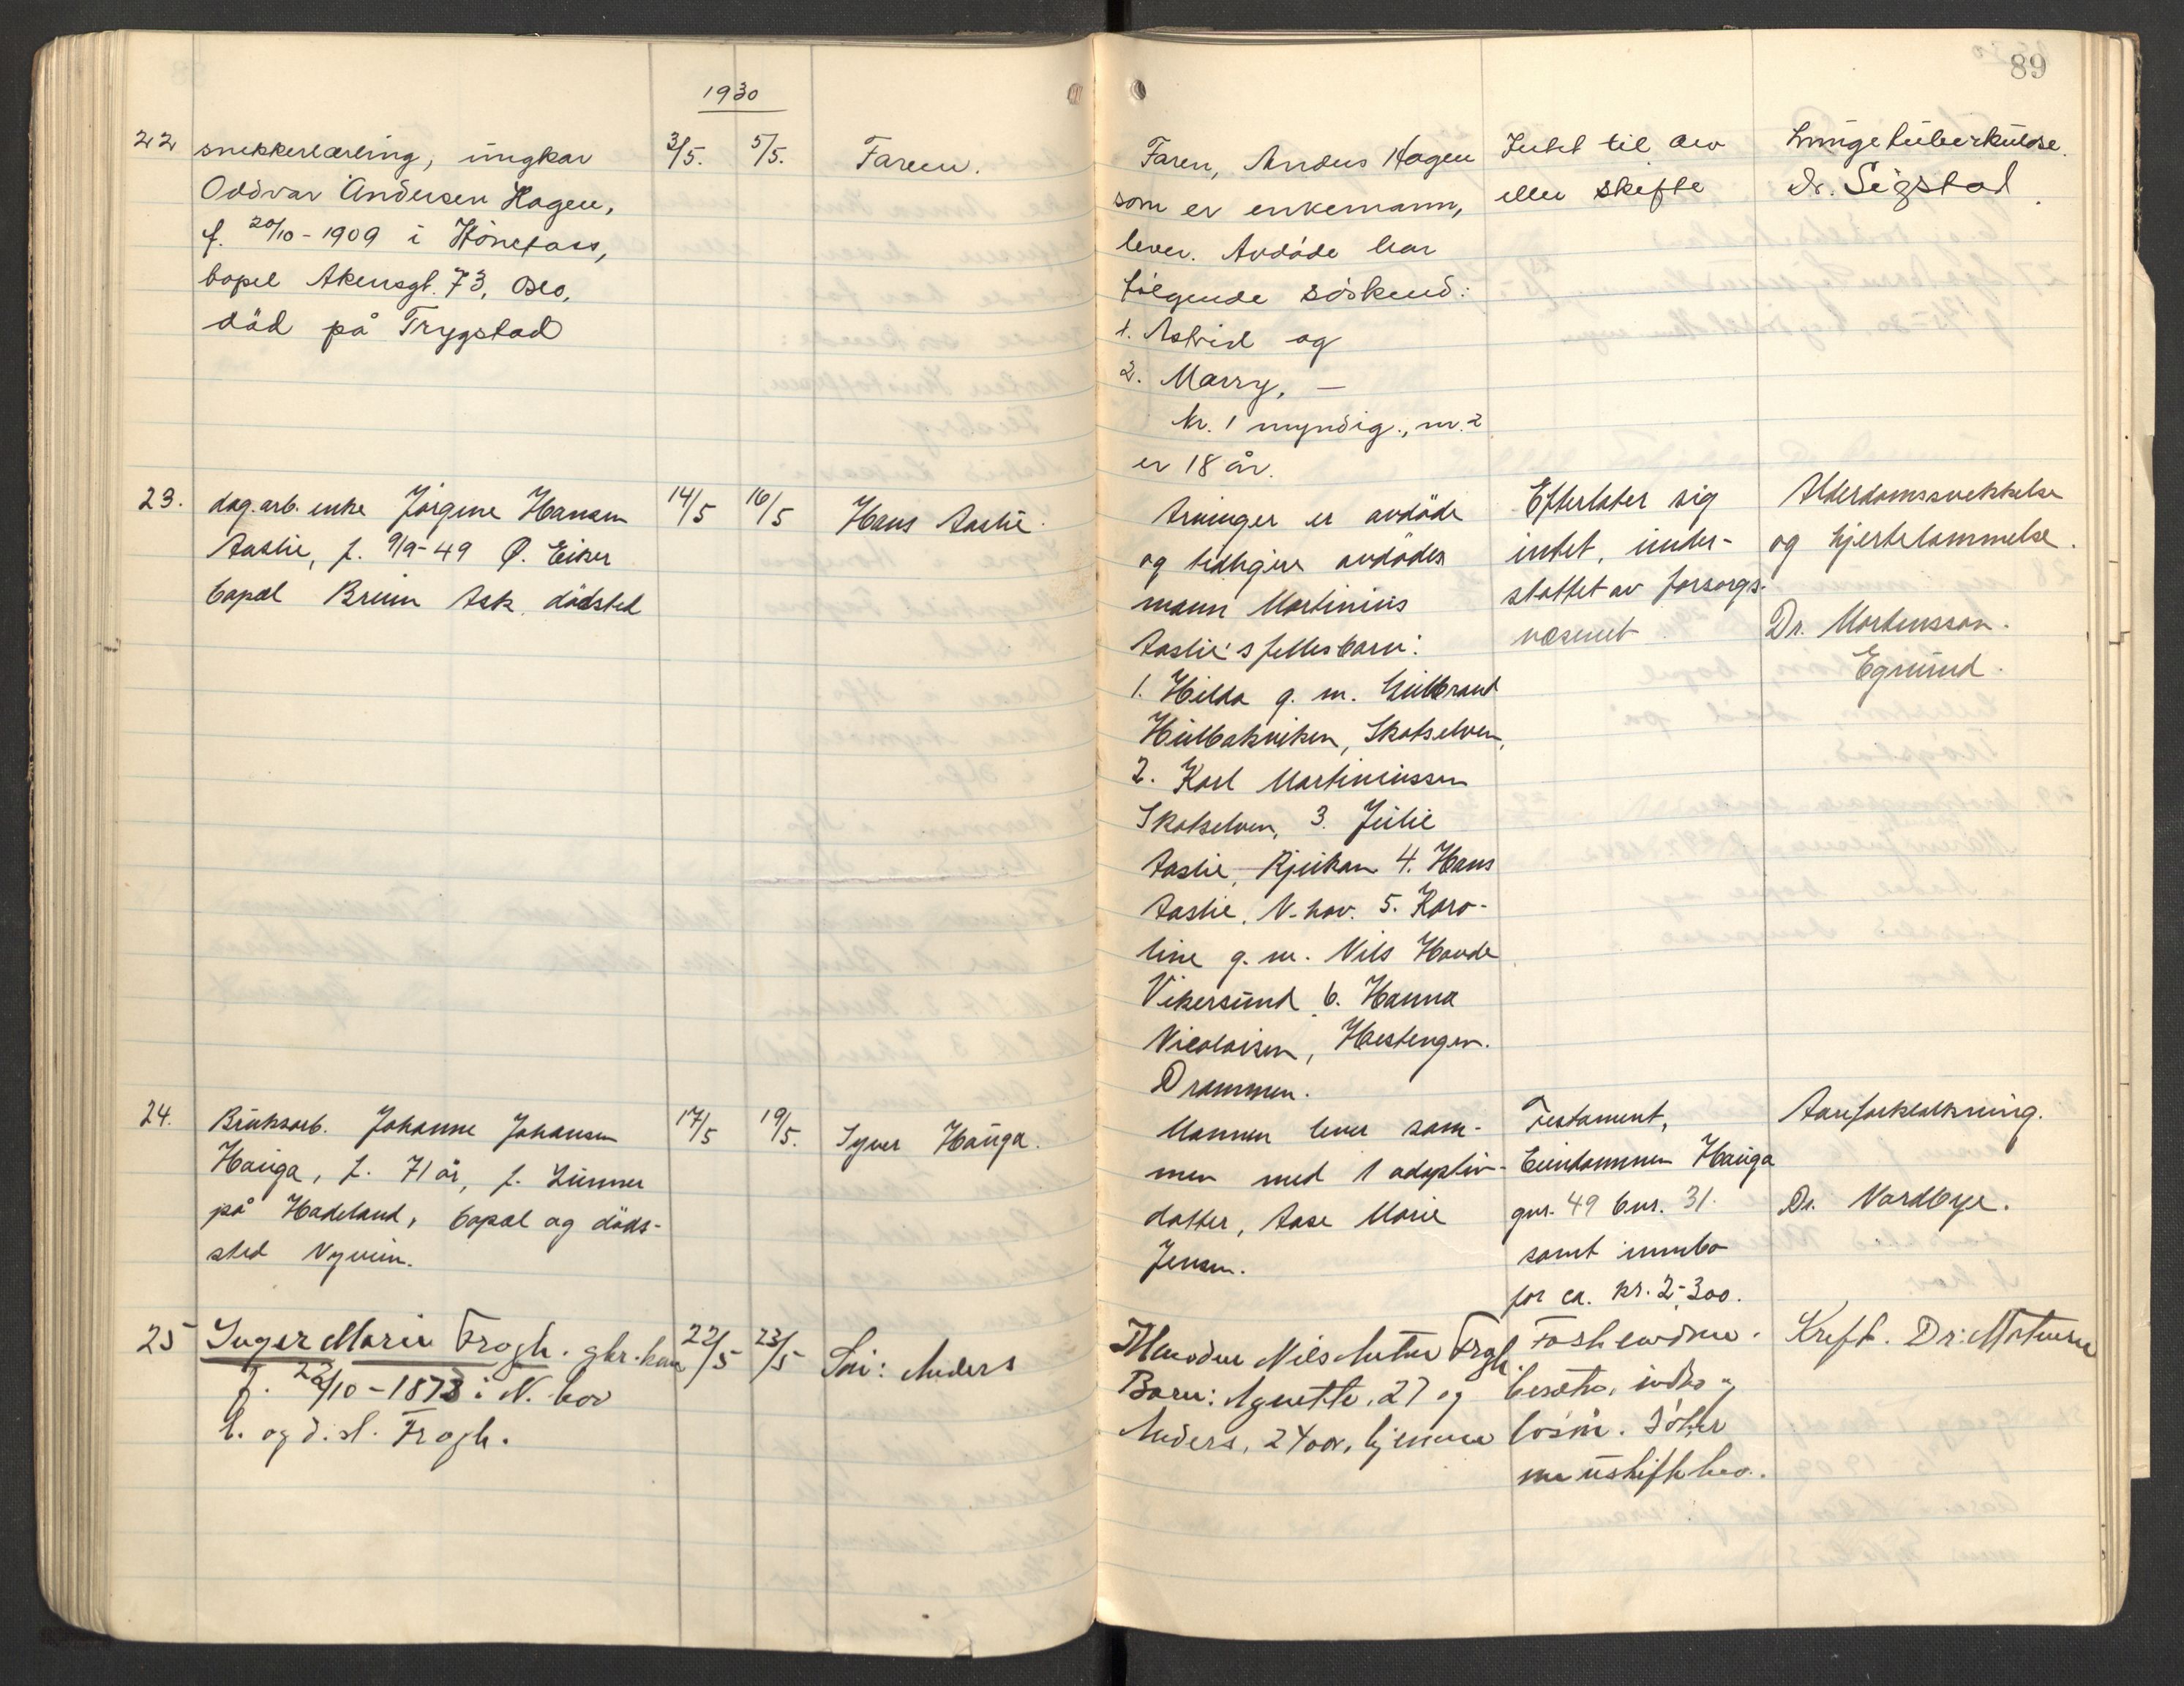 1930
89
22 snekkerlærling, ungkar 3/5. 5/5. Faren.
Oddvar Andersen Hagen,
f. 20/10-1909 i Hönefoss,
bopel Akersgt. 73, Oslo,
död på Trygstad
Faren, Anders Hagen
som er enkemann,
lever. Avdöde har
fölgende söskend:
1. Astrid og
2. Marry, —
Nr. 1 myndig., nr. 2
er 18 år.
Intet til arv
eller skifte
Lungetuberkulose.
Dr. Sigstad.
23. dag.arb. enke Jörgine Hansen 14/5 16/5 Hans Aaslie.
Aaslie, f. 9/9-49 Ö. Eiker
bopæl Bruun Ask. dödsted
Arvinger er avdöde
og tidligere avdödes
mann Martinius
Aaslie's fellesbarn:
1. Hilda g. m. Gulbrand
Hulbakviken, Skotselven,
2. Karl Martiniussen
Skotselven, 3. Julie
Aaslie, Rjukan 4. Hans
Aaslie, N-hov. 5. Karo-
line g. m. Nils Hovde
Vikersund 6. Hanna
Nicolaisen, Hestengen.
Drammen.
Efterlater sig
intet, under-
støttet av forsorgs-
væsenet
Alderdomssvekkelse
og hjertelammelse.
Dr. Mortensson.
Egnund.
24. Bruksarb. Johanne Johansen 17/5 19/5. Syver Hauga.
Hauga, f. 71 år, f. Lunner
på Hadeland, bopæl og döds-
sted Nymun.
Mannen lever sam-
men med 1 adoptiv-
datter, Aase Marie
Jensen.
Testament,
Eiendommen Hauga
gnr. 49 bnr. 31.
samt innbo
for ca. kr. 2-300.
Aareforkalkning.
Dr. Nordbye.
25 Inger Marie Frogh. gbr.kone 22/5 23/5 Sön: Anders
f. 22/10-1873 i N. hov
b. og d.st. Frogh.
Nils Anton Frogh.
Barn: Agnethe, 27 og
Anders, 24 aar, hjemme
Fast eiendom.
besetn, indbo og
lösöre. Söker
om uskifte bev.
Kreft. Dr: Mortensen